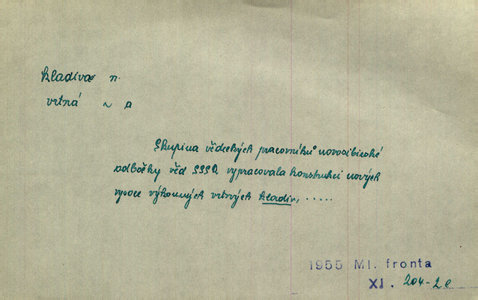 kladivo n.
vrtná ~ a
Skupina vědeckých pracovníků novosibirské
odbočky věd SSSR vypracovala konstrukci nových
vysoce výkonných vrtných kladiv, .....
1955 Ml. fronta
XI. 204-2e